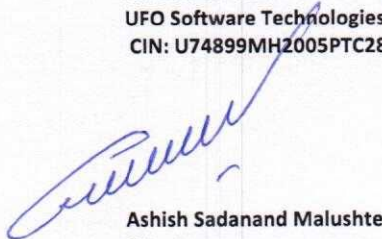 UFO Software Technologies
CIN: U74899MH2005PTC28
Ashish Sadanand Malushte